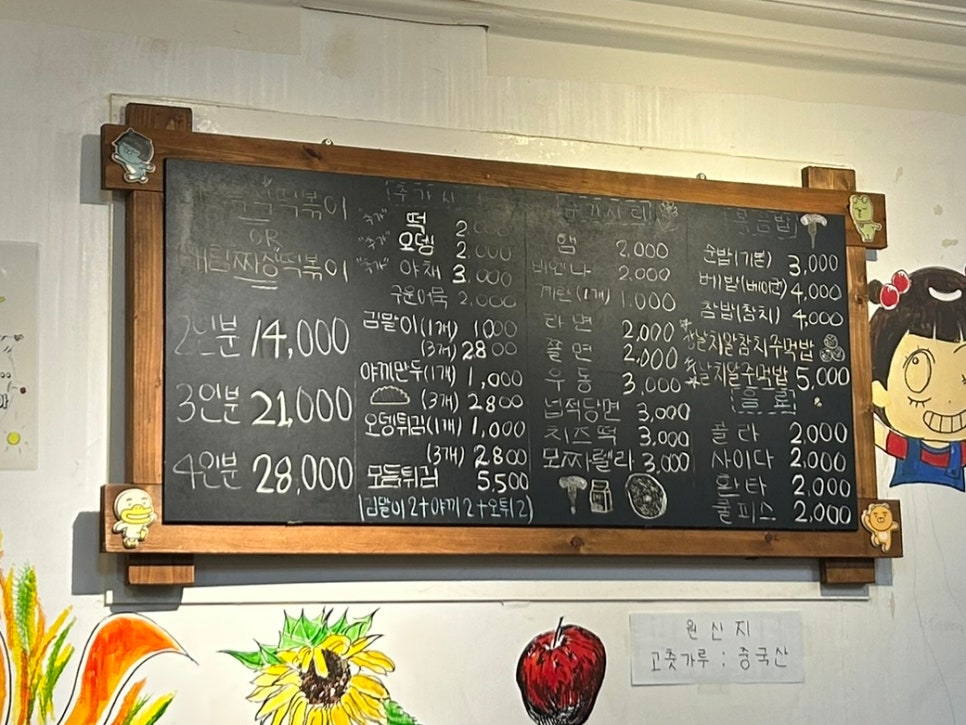 즉석떡볶이
OR
짜장떡볶이
2인분 14,000
3인분 21,000
4인분 28,000
추가사
"국가" 떡 2,000
"국가" 오뎅 2,000
"국가" 야채 3,000
구운어묵 2,000
김말이(1개) 1000
(3개) 2800
야끼만두(1개) 1,000
(3개) 2800
오뎅튀김(1개) 1,000
(3개) 2800
모듬튀김 5,500
(김말이2+야끼2+오튀2)
햄 2,000
비엔나 2,000
계란(1개) 1,000
라면 2,000
쫄면 2,000
우동 3,000
넙적당면 3,000
치즈떡 3,000
모짜렐라 3,000
볶음밥
순밥(기본) 3,000
베밥(베이컨) 4,000
참밥(참치) 4,000
날치알참치주먹밥
날치알주먹밥 5,000
음료
콜라 2,000
사이다 2,000
환타 2,000
쿨피스 2,000
원산지
고춧가루 : 중국산